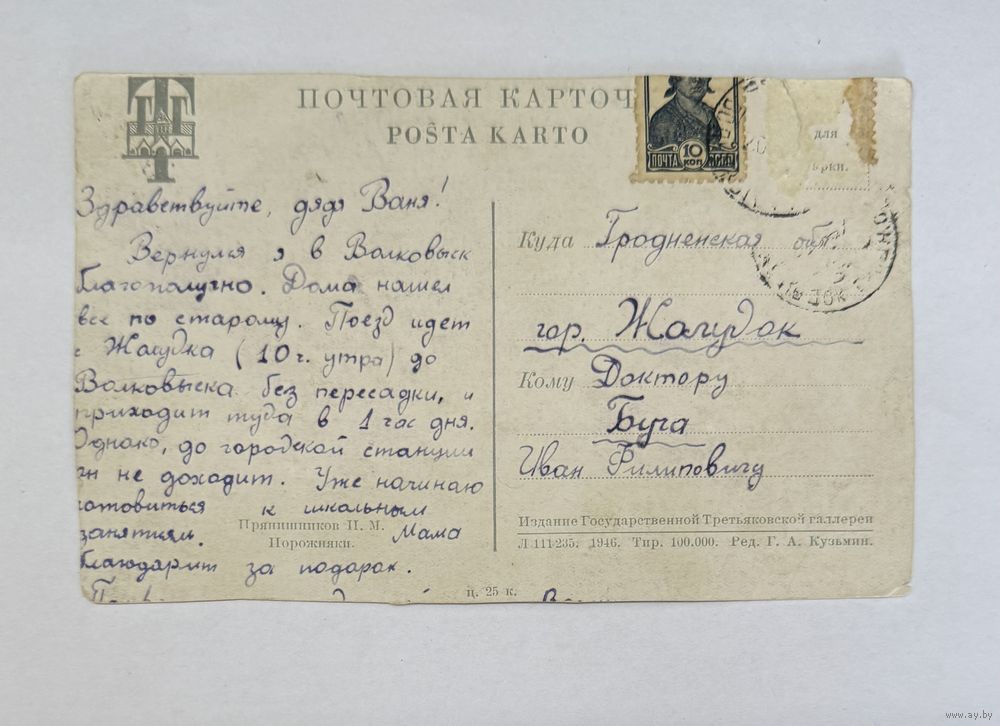 ПОЧТОВАЯ КАРТОЧ
POŜTA KARTO
ПОЧТА 10 КОП СССР
для
рки.
Здравствуйте, дядя Ваня!
Вернулся я в Волковыск
благополучно. Дома нашел
все по старому. Поезд идет
с Жалудка (10 ч. утра) до
Волковыска без пересадки, и
приходит туда в 1 час дня.
Однако, до городской станции
он не доходит. Уже начинаю
готовиться к школьным
занятиям. Мама
благодарит за подарок.
Прянишников И. М.
Порожняки.
ц. 25 к.
Куда Гродненская обл.
гор. Жалудок
Кому Доктору
Буча
Иван Филиповичу
Издание Государственной Третьяковской галлереи
Л 111235. 1946. Тир. 100.000. Ред. Г. А. Кузьмин.
www.ay.by